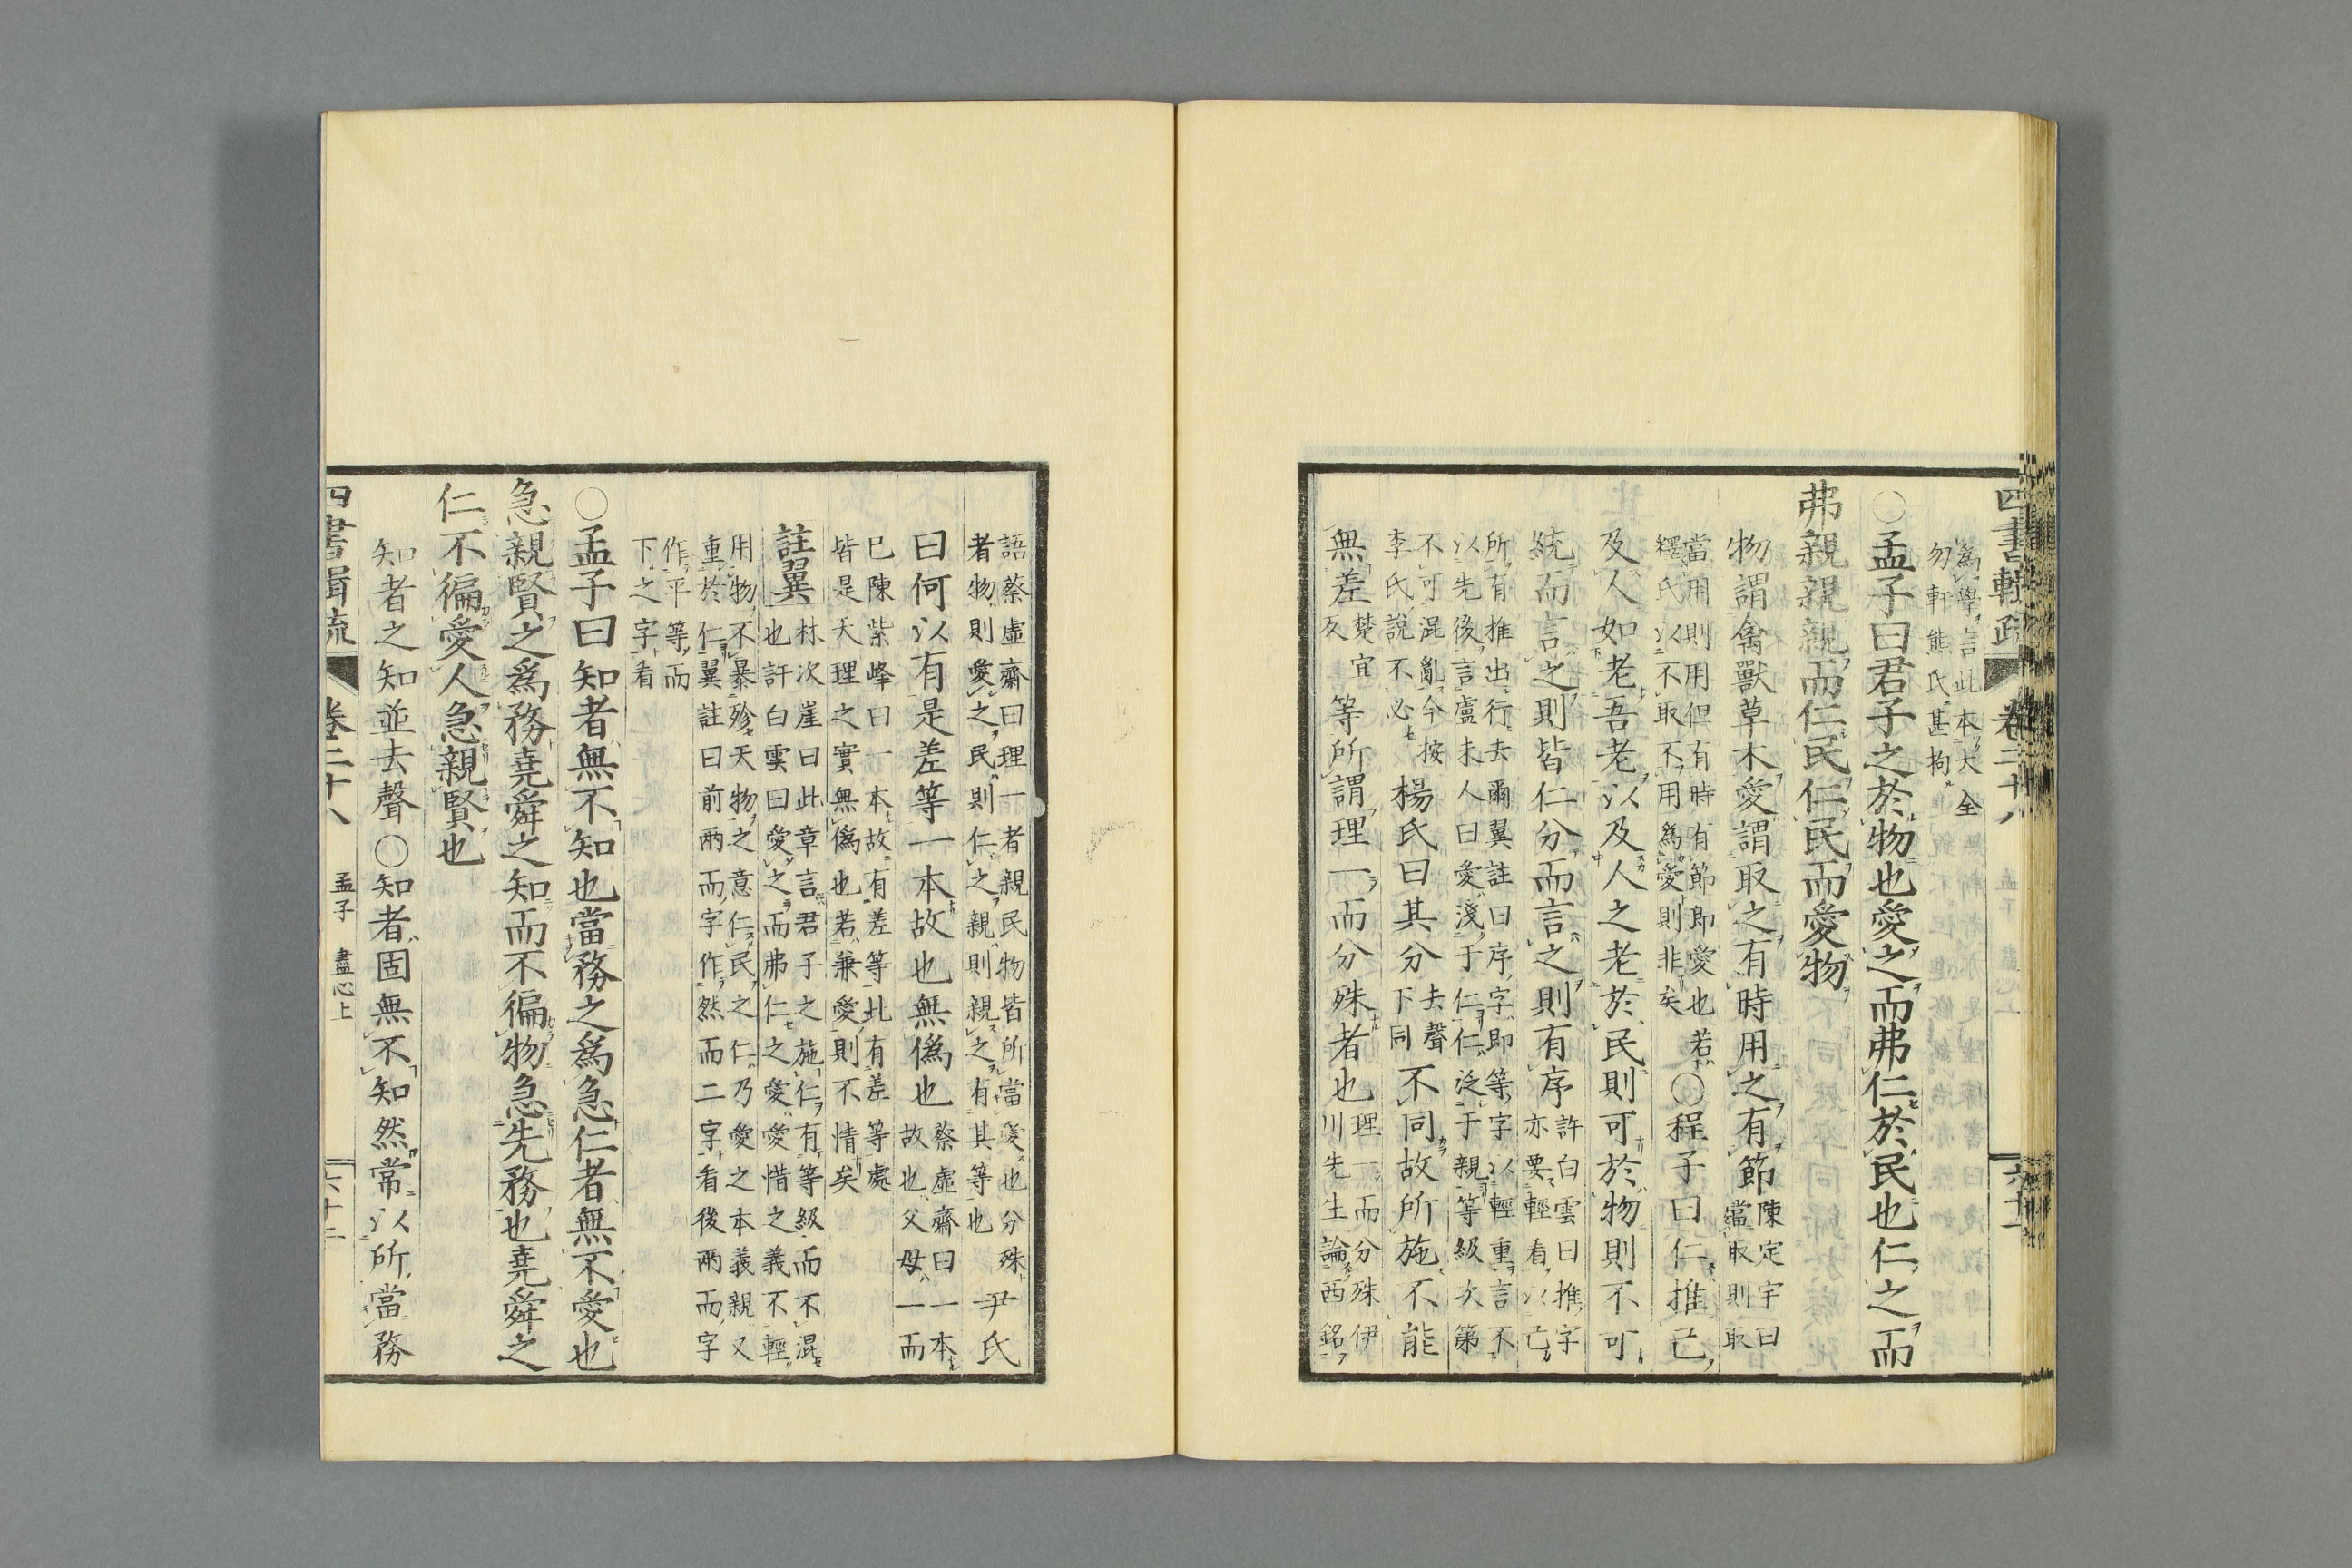 四書輯疏 卷二十八 孟子 盡心上 六十一
為學言此本大全
勿軒熊氏甚拘
○孟子曰君子之於物也愛之而弗仁於民也仁之而
弗親親親而仁民仁民而愛物
物謂禽獸草木愛謂取之有時用之有節陳定宇曰
當取則取
當用則用但有時有節即愛也若
釋氏以不取不用為愛則非矣○程子曰仁推己
及人如老吾老以及人之老於民則可於物則不可
統而言之則皆仁分而言之則有序許白雲曰推字
亦要輕看以亡
所有推出行去爾翼註曰序字即等字以輕重言不
以先後言盧未人曰愛淺于仁仁泛于親等級次第
不可混亂今按
李氏說不必楊氏曰其分去聲
下同不同故所施不能
無差楚宜
反等所謂理一而分殊者也理一而分殊伊
川先生論西銘
語蔡虛齋曰理一者親民物皆所當愛也分殊
者物則愛之民則仁之親則親之有其等也尹氏
曰何以有是差等一本故也無僞也蔡虛齋曰一本
故也父母一而
已陳紫峰曰一本故有差等此有差等處
皆是天理之實無僞也若兼愛則不情矣
註翼林次崖曰此章言君子之施仁有等級而不混
也許白雲曰愛之而弗仁之愛愛惜之義不輕
用物不暴殄天物之意仁民之仁乃愛之本義親又
重於仁翼註曰前兩而字作然而二字看後兩而字
作平等而
下之字看
○孟子曰知者無不知也當務之為急仁者無不愛也
急親賢之為務堯舜之知而不徧物急先務也堯舜之
仁不徧愛人急親賢也
知者之知並去聲○知者固無不知然常以所當務
四書輯疏 卷二十八 孟子 盡心上 六十二